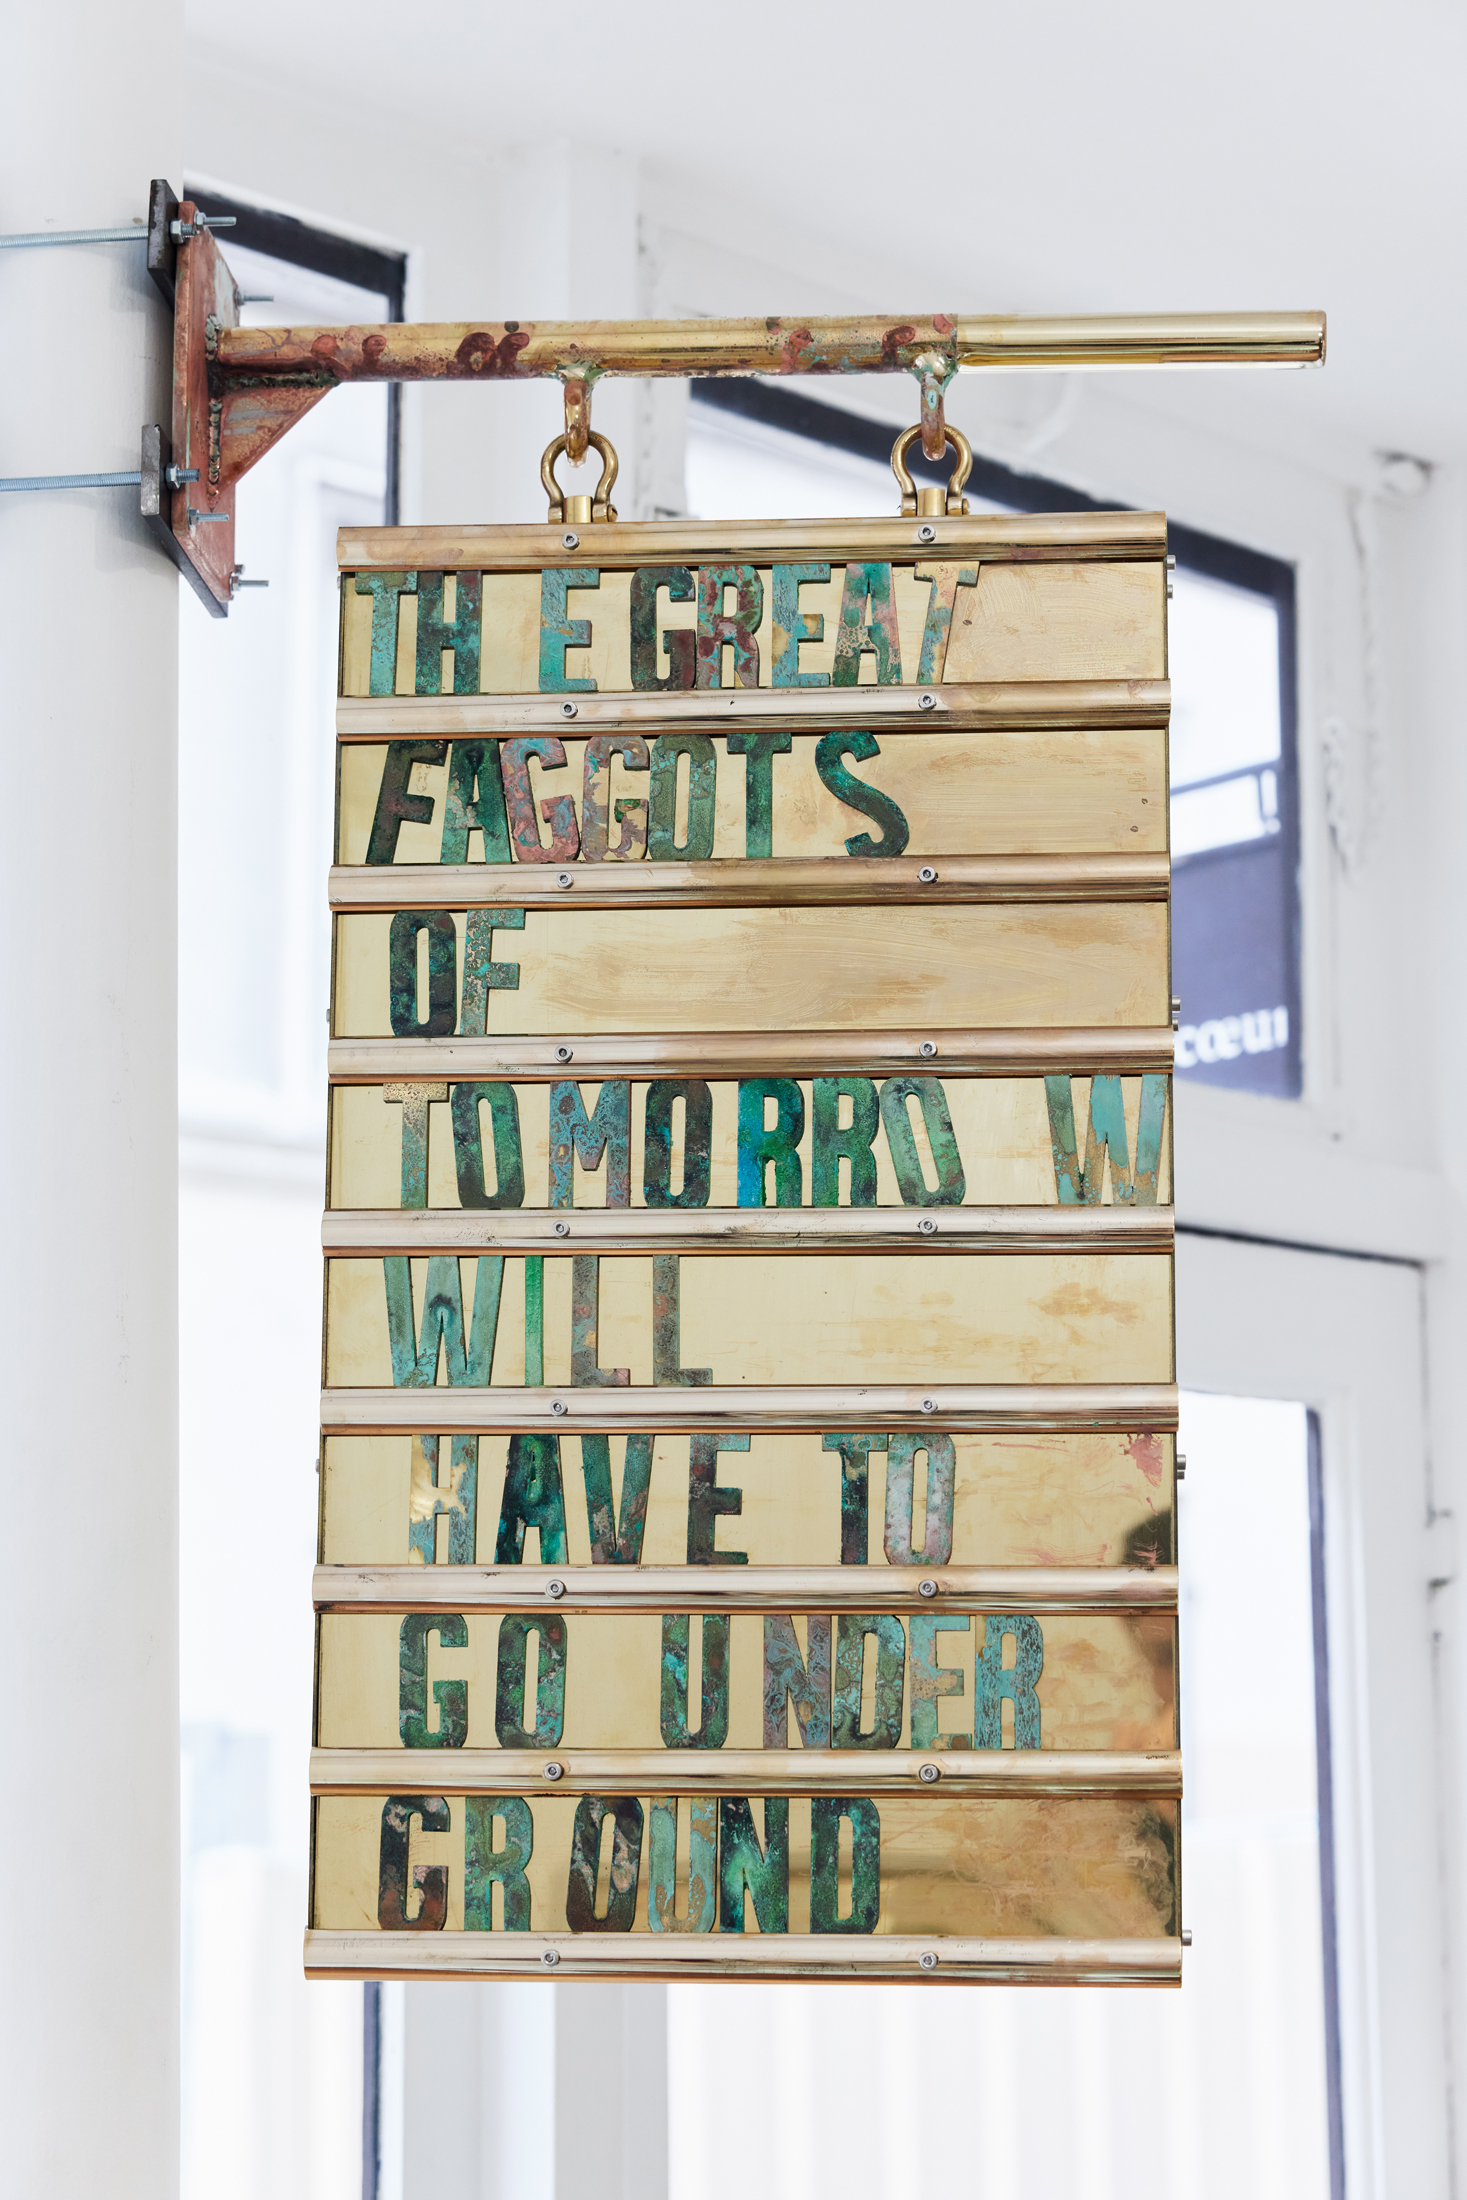 THE GREAT
FAGGOTS
OF
TOMORROW
WILL
HAVE TO
GO UNDER
GROUND
cœur